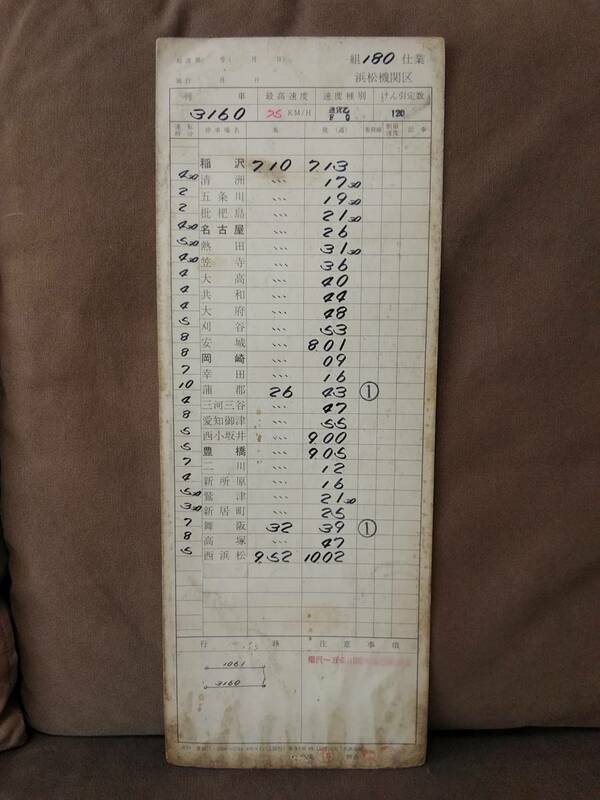 組 180 仕業
浜松機関区
列車 最高速度 速度種別 けん引定数
3160 75 KM/H 通貨乙 120
運転時分 停車場名 着 発(通) 着発線 制限速度 記事
稲沢 7 10 7 13
4 30 清洲 … 17 30
2 五条川 … 19 30
2 枇杷島 … 21 30
4 30 名古屋 … 26
5 30 熱田 … 31 30
4 30 笠寺 … 36
4 大高 … 40
4 共和 … 44
4 大府 … 48
5 刈谷 … 53
8 安城 … 8 01
8 岡崎 … 09
7 幸田 … 16
10 蒲郡 26 43 ①
4 三河三谷 … 47
8 愛知御津 … 55
5 西小坂井 … 9 00
5 豊橋 … 9 05
7 二川 … 12
4 新所原 … 16
5 30 鷲津 … 21 30
3 30 新居町 … 25
7 舞阪 32 39 ①
8 高塚 … 47
5 西浜松 9 52 10 02
行路 注意事項
1061
3160